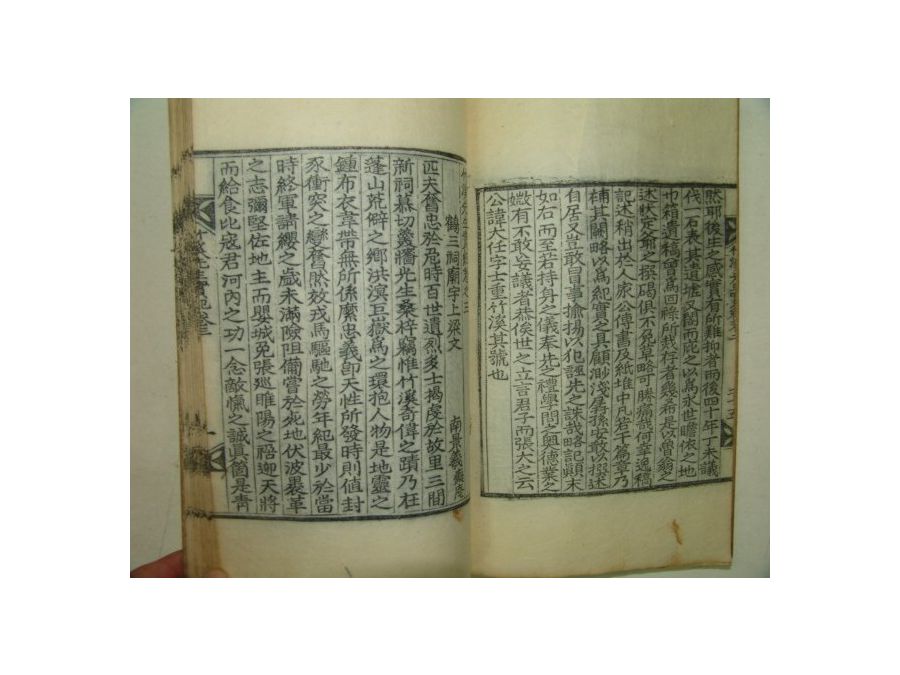 然耶後生之感實有所難抑者而後四十年丁未議
代一石表其遺墟有閣而庇之以爲永世瞻依之地
也稍遺稿曾爲回祿所我存者幾希是以曾翁之
述狀定翁之撰碣俱不免草略可勝痛哉何幸逸稿
記述稍出於人家公傳書及紙堆中凡若干篇章乃
補其闕略以爲紀實之具顧渺淺孱孫安敢以撰述
自居又豈敢冒事揄揚以犯誣先之誅哉略記顚末
如右而至若持身之儀奉先之禮學問之奧德業之
媺有不敢妄議者恭俟世之立言君子而張大之云
公諱大任字士重竹溪其號也
鶴三祠廟宇上梁文
南景羲
匹夫奮忠於危時百世遺烈多士揭虔於故里三間
新祠慕切羹牆光生桑梓竊惟竹溪奇偉之蹟乃在
蓬山荒僻之鄕洪溟巨嶽爲之環抱人物是地靈之
鍾布衣韋帶無所係縻忠義卽天性所發時則値封
豕衝突之變奮然效戎馬驅馳之勞年紀最少於當
時終軍請纓之歲未滿險阻備嘗於死地伏波裹革
之志彌堅佐地主而嬰城免張巡睢陽之禍迎天將
而給食比寇君河內之功一念敵愾之誠眞箇是靑